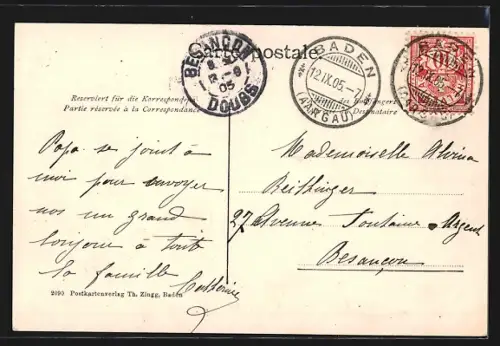 Carte postale.
BESANCON
DOUBS
BADEN
12.IX.05.-7
(AARGAU)
BADEN
Reserviert für die Korrespondenz
Partie réservée à la Correspondance
des Empfängers
Destinataire
Papa se joint à
moi pour envoyer
un grand
bonjour à toute
la famille
Mademoiselle
Beithinger
27 Avenue Fontaine-Argent
Besançon
2093 Postkartenverlag Th. Zingg, Baden